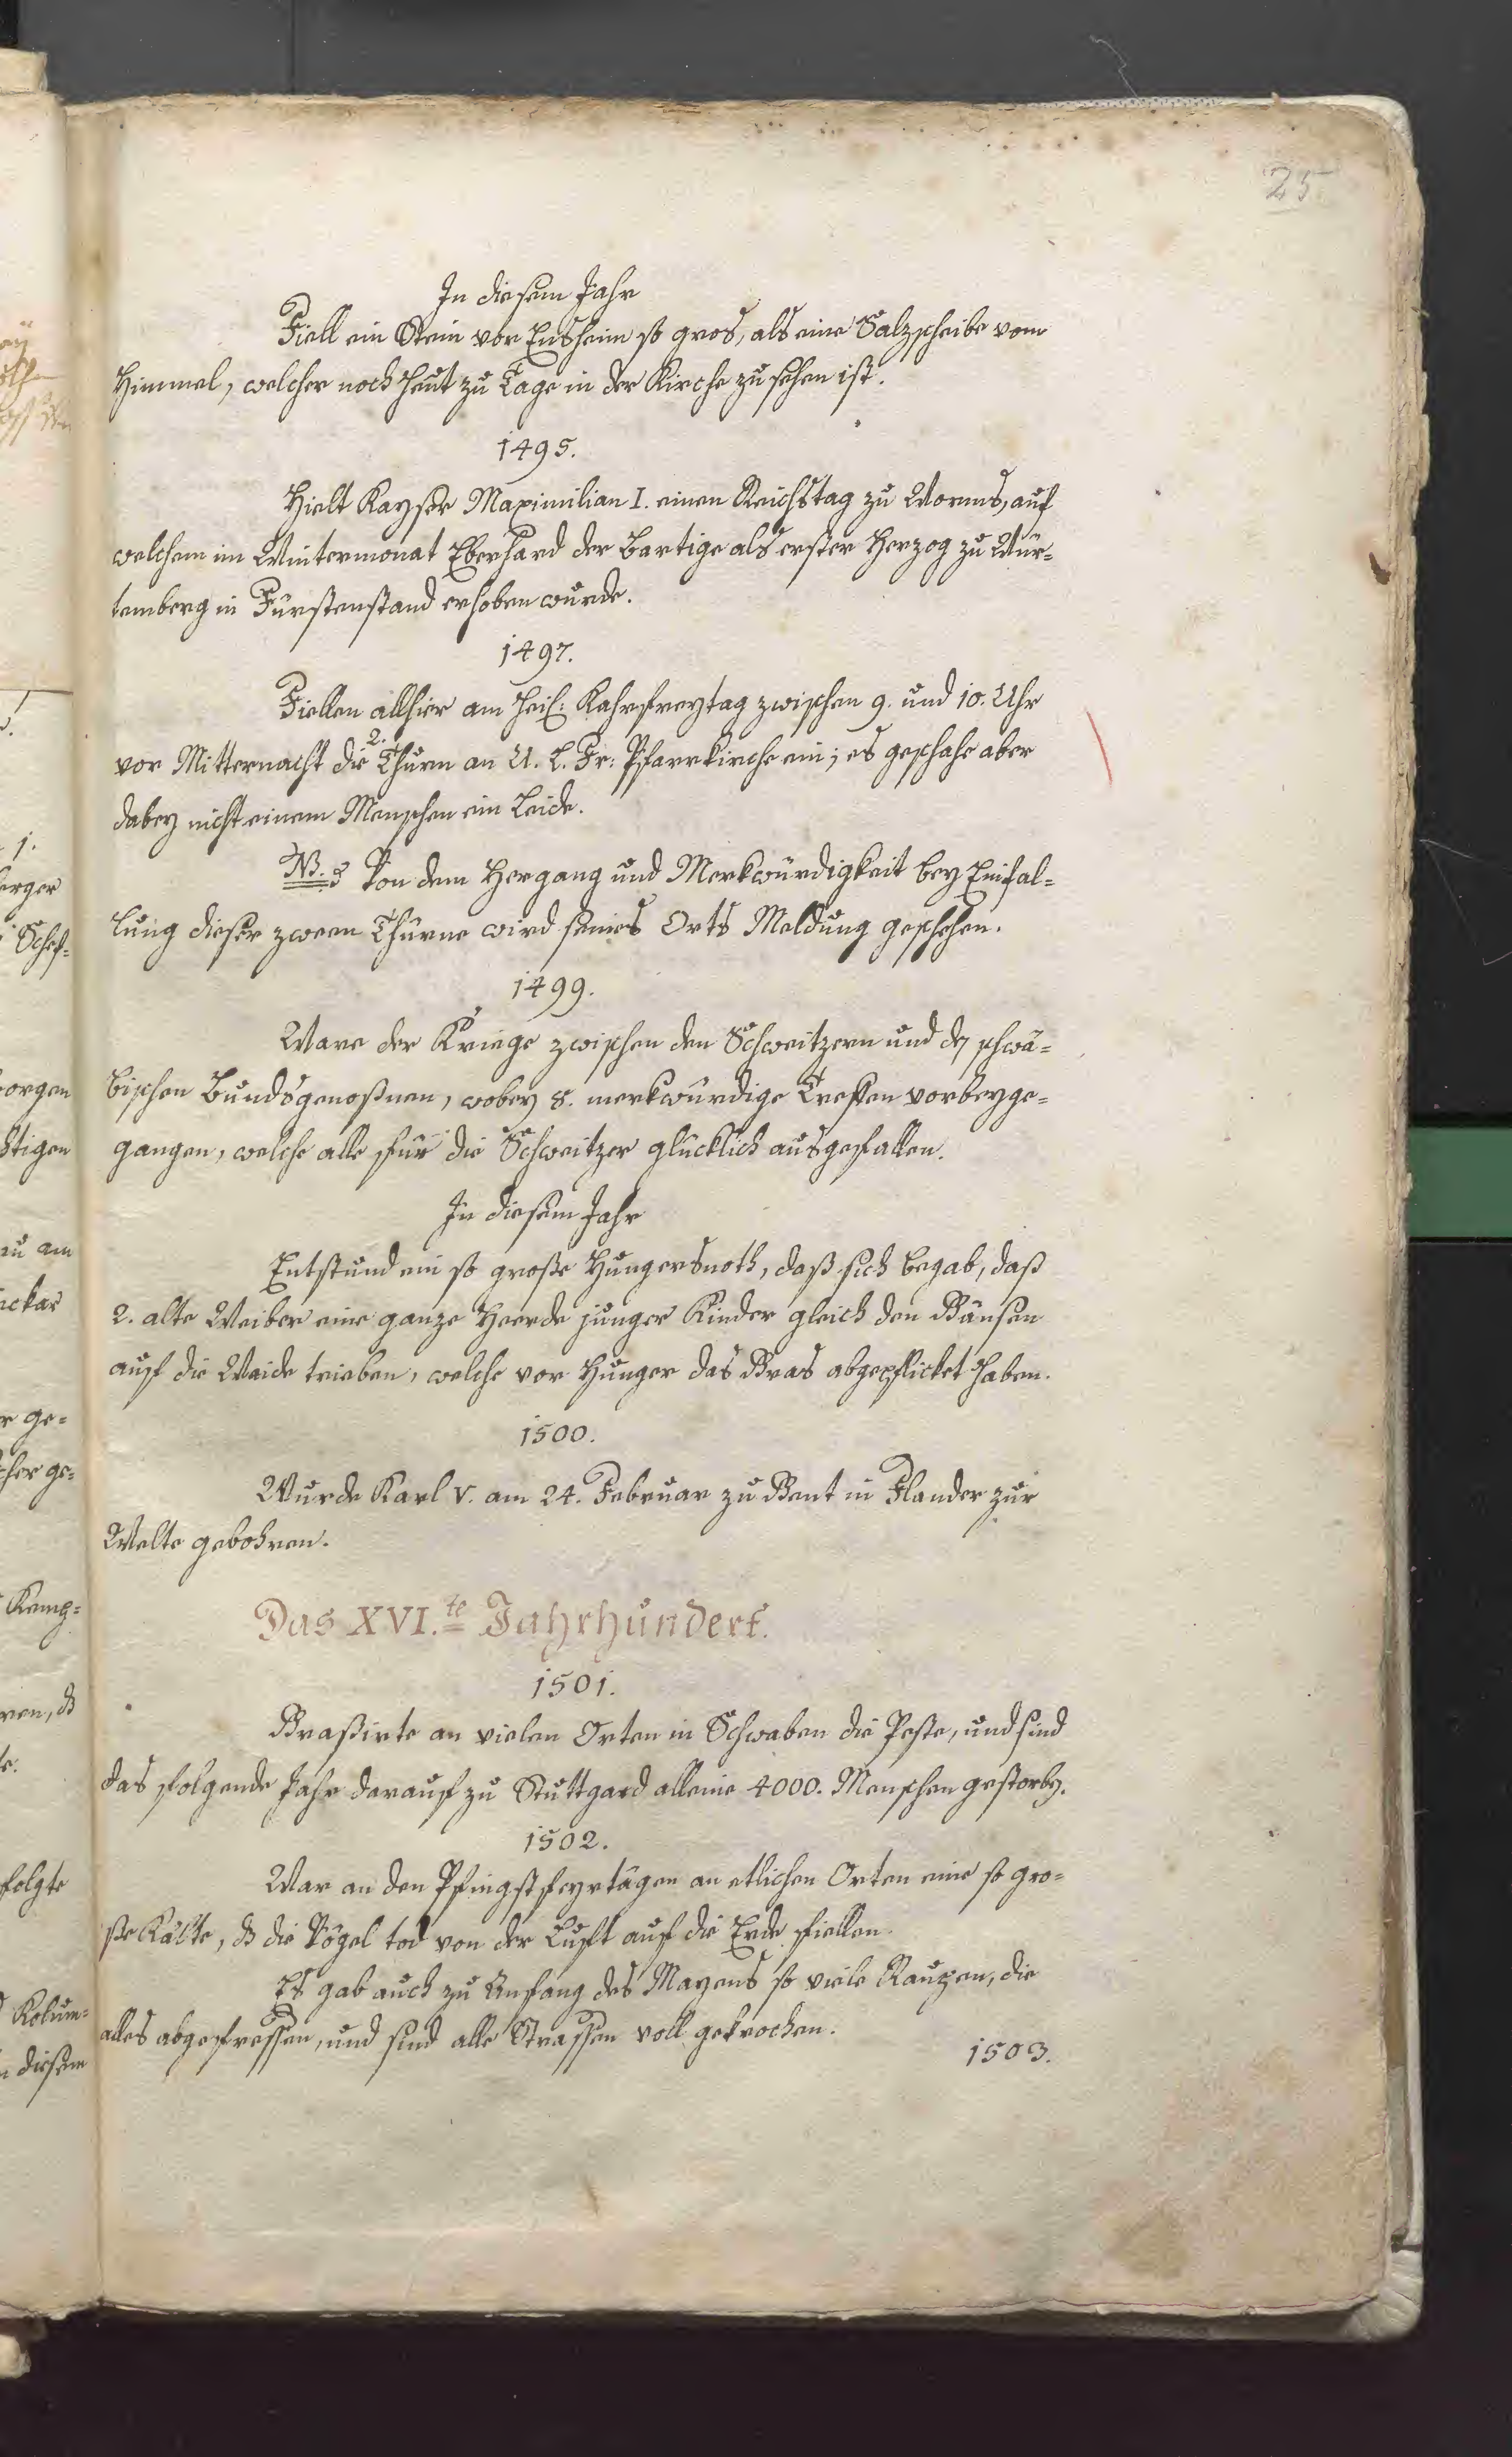 25
In diesem Jahr
Fiell ein Stein vor Ensheim so gros, als eine Salzscheibe vom
Himmel, welcher noch heut zu Tage in der Kirche zu sehen ist.
1495.
Hielt Kayser Maximilian I. einen Reichstag zu Worms, auf
welchem im Wintermonat Eberhard der Bartige als erster Herzog zu Wür-
temberg in Fürstenstand erhoben wurde.
1497.
Fiellen allhier am heil: Kahrfreytag zwischen 9. und 10. Uhr
vor Mitternacht die 2. Thurn an U. L. Fr: Pfarrkirche ein; es geschahe aber
dabey nicht einem Menschen ein Leide.
NB. Von dem Hergang und Merkwürdigkeit bey Einfal-
lung dieser zween Thürne wird seines Orts Meldung geschehen.
1499.
Ware der Kriege zwischen den Schweitzern und den schwä-
bischen Bundsgenoßnen, wobey 8. merkwürdige Treffen vorbeyge-
gangen, welche alle für die Schweitzer glücklich ausgefallen.
In diesem Jahr
Entstund ein so große Hungersnoth, daß sich begab, daß
2. alte Weiber eine ganze Heerde junger Kinder gleich den Gänsen
auf die Weide trieben, welche vor Hunger das Gras abgepflicket haben.
1500.
Wurde Karl V. am 24. Februar zu Gent in Flander zur
Welte gebohren.
Das XVI.te Jahrhundert.
1501.
Graßirte an vielen Orten in Schwaben die Peste, und sind
das folgende Jahr darauf zu Stuttgard alleine 4000. Menschen gestorben.
1502.
War an den Pfingstfeyrtägen an etlichen Orten eine so gro-
ße Kälte, daß die Vögel tod von der Luft auf die Erde fiellen.
Es gab auch zu Anfang des Mayens so viele Raupen, die
alles abgefressen, und sind alle Strassen voll gekrochen.
1503.